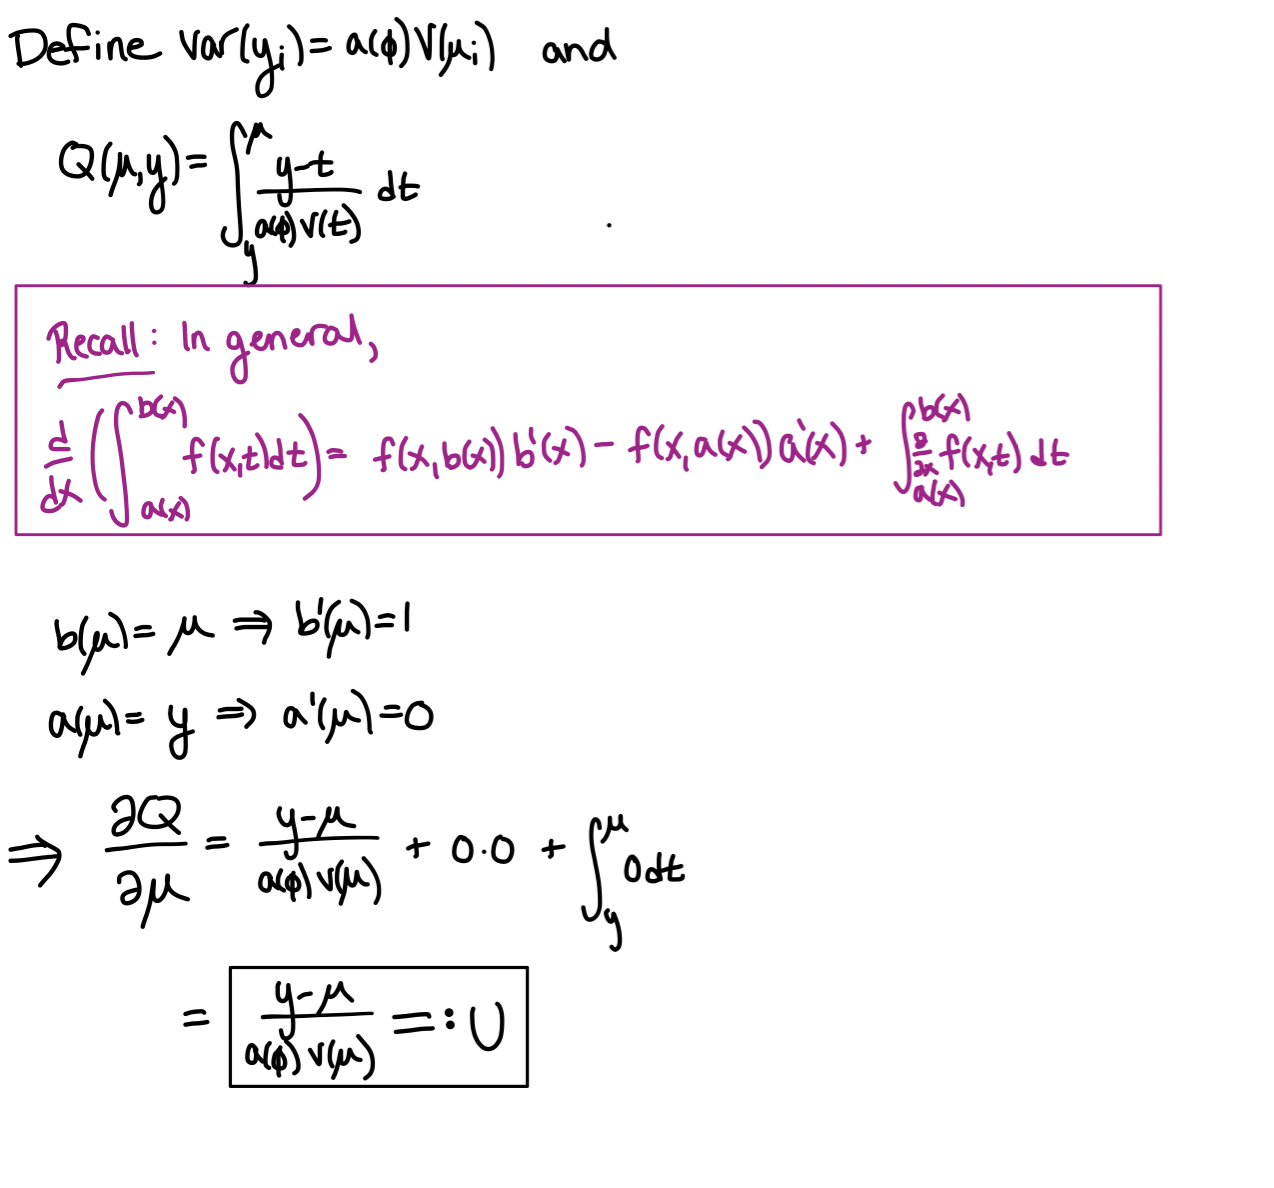 Define Var(y_i) = a(ϕ)V(μ_i) and
Q(μ,y) = ∫_y^μ (y-t)/(a(ϕ)V(t)) dt
Recall: In general,
d/dx (∫_{a(x)}^{b(x)} f(x,t)dt) = f(x,b(x))b'(x) - f(x,a(x))a'(x) + ∫_{a(x)}^{b(x)} ∂/∂x f(x,t) dt
b(μ) = μ ⇒ b'(μ) = 1
a(μ) = y ⇒ a'(μ) = 0
⇒ ∂Q/∂μ = (y-μ)/(a(ϕ)V(μ)) + 0·0 + ∫_y^μ 0dt
= (y-μ)/(a(ϕ)V(μ)) =: U